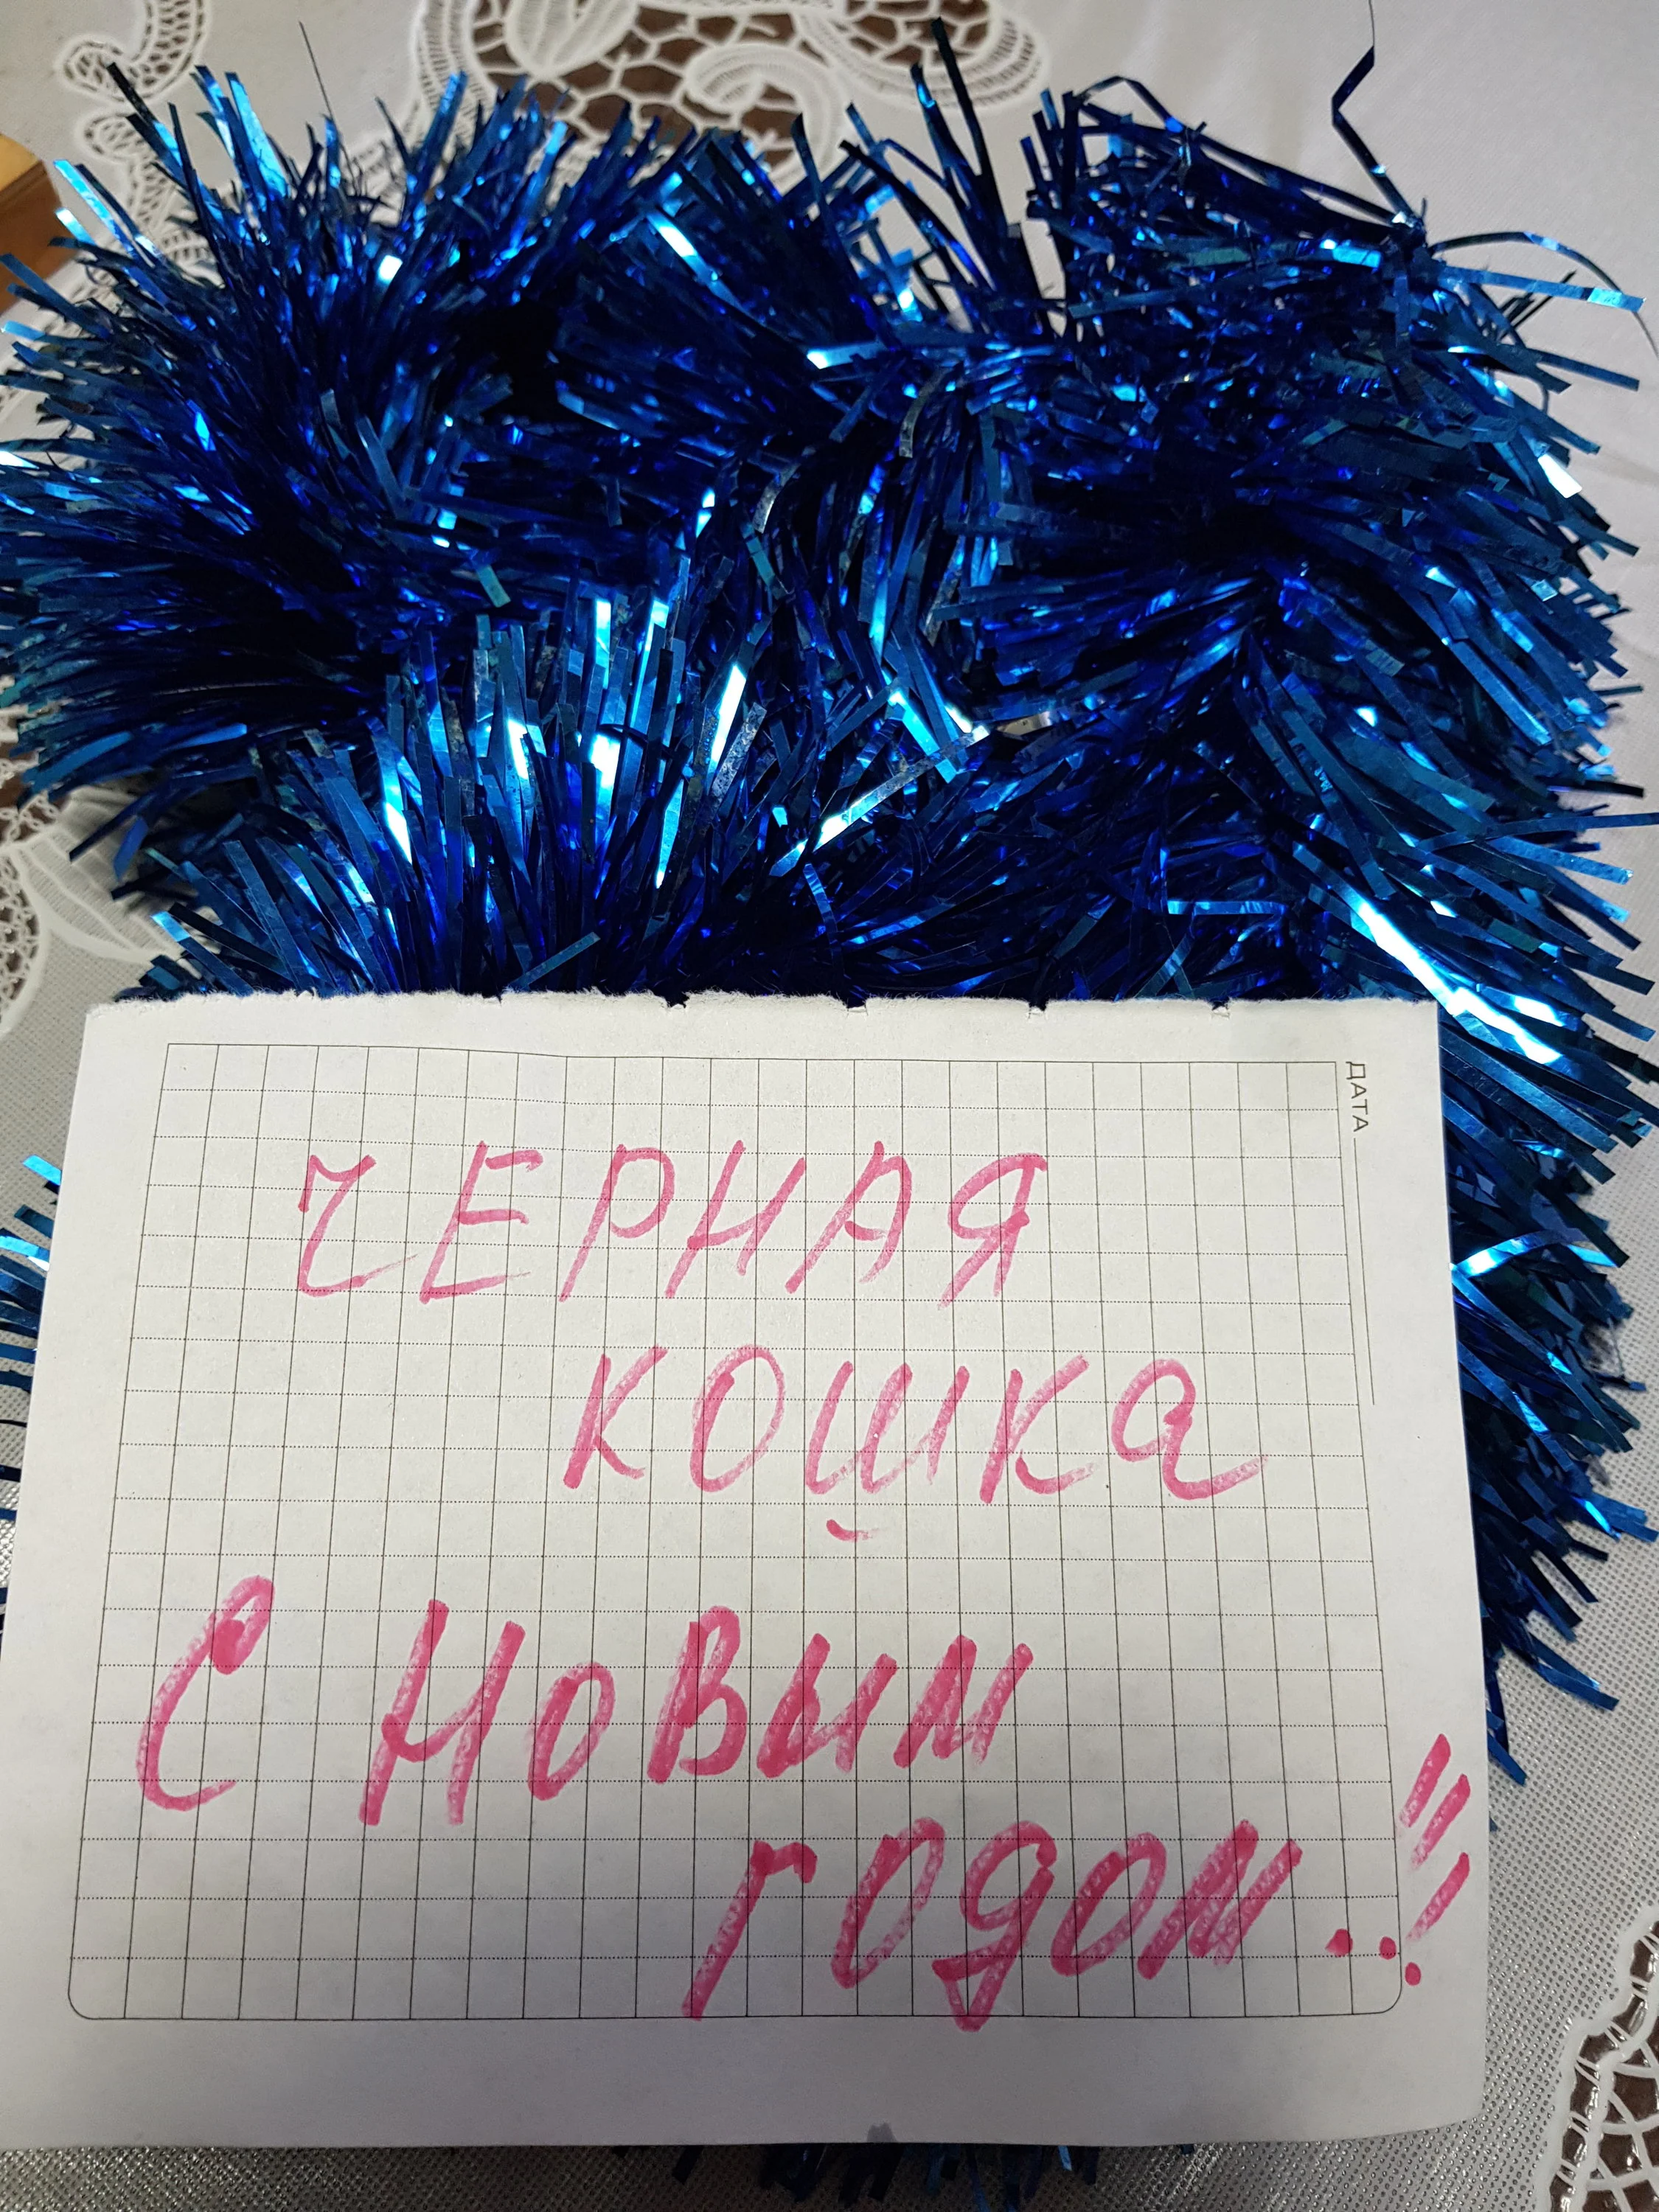 ДАТА
ЧЕРНАЯ
КОШКА
С НОВЫМ
ГОДОМ..!!!